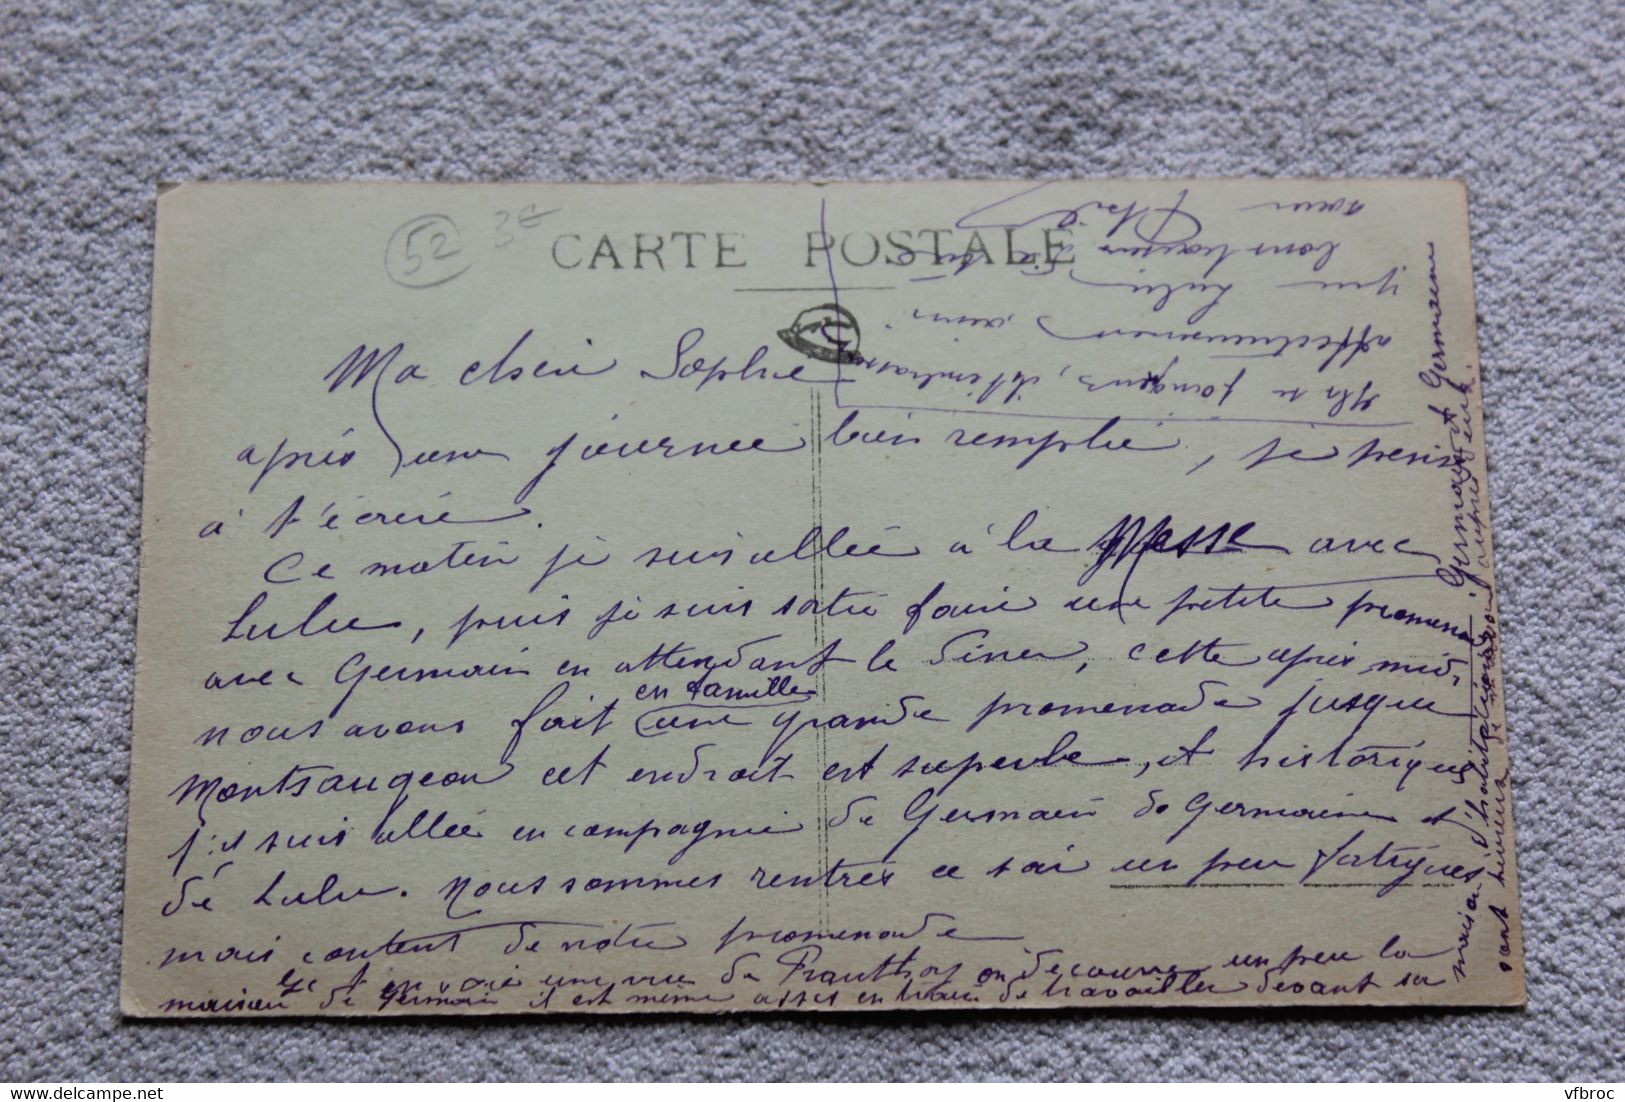 52
3€
CARTE POSTALE
Ma cheri Sophie
après une journee bien remplie, je viens
à t'écrire.
Ce matin je suis allée à la Messe avec
Lulu, puis je suis sortie faire une petite promena
avec Germain en attendant le diner, cette après mid.
nous avons fait en famille une grande promenade jusque
Montsaugeon cet endroit est superbe, et historique
j'y suis allée en compagnie de Germain de Germaine et
de Lulu. Nous sommes rentrés ce soir un peu fatigués
mais content de notre promenade
Je t'envoie une vue de Prauthoy on découvre un peu la
maison de Germain il est même assis en train de travailler devant sa
maison d'habitation. Germain et Germaine
sont heureux de auprès d'eux.
Ils se joignent, t'embrassent
affectueusement ainsi
que Lulu
bons baisers
sœur
delcampe.net
vfbroc